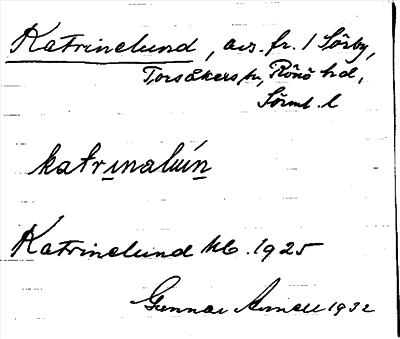 Katrinelund, avs. fr. 1 Sörby,
Torsåkers sn, Rönö hd,
Sörml. l
katrinalún
Katrinelund Mb. 1925
Gunnar Arnell 1932